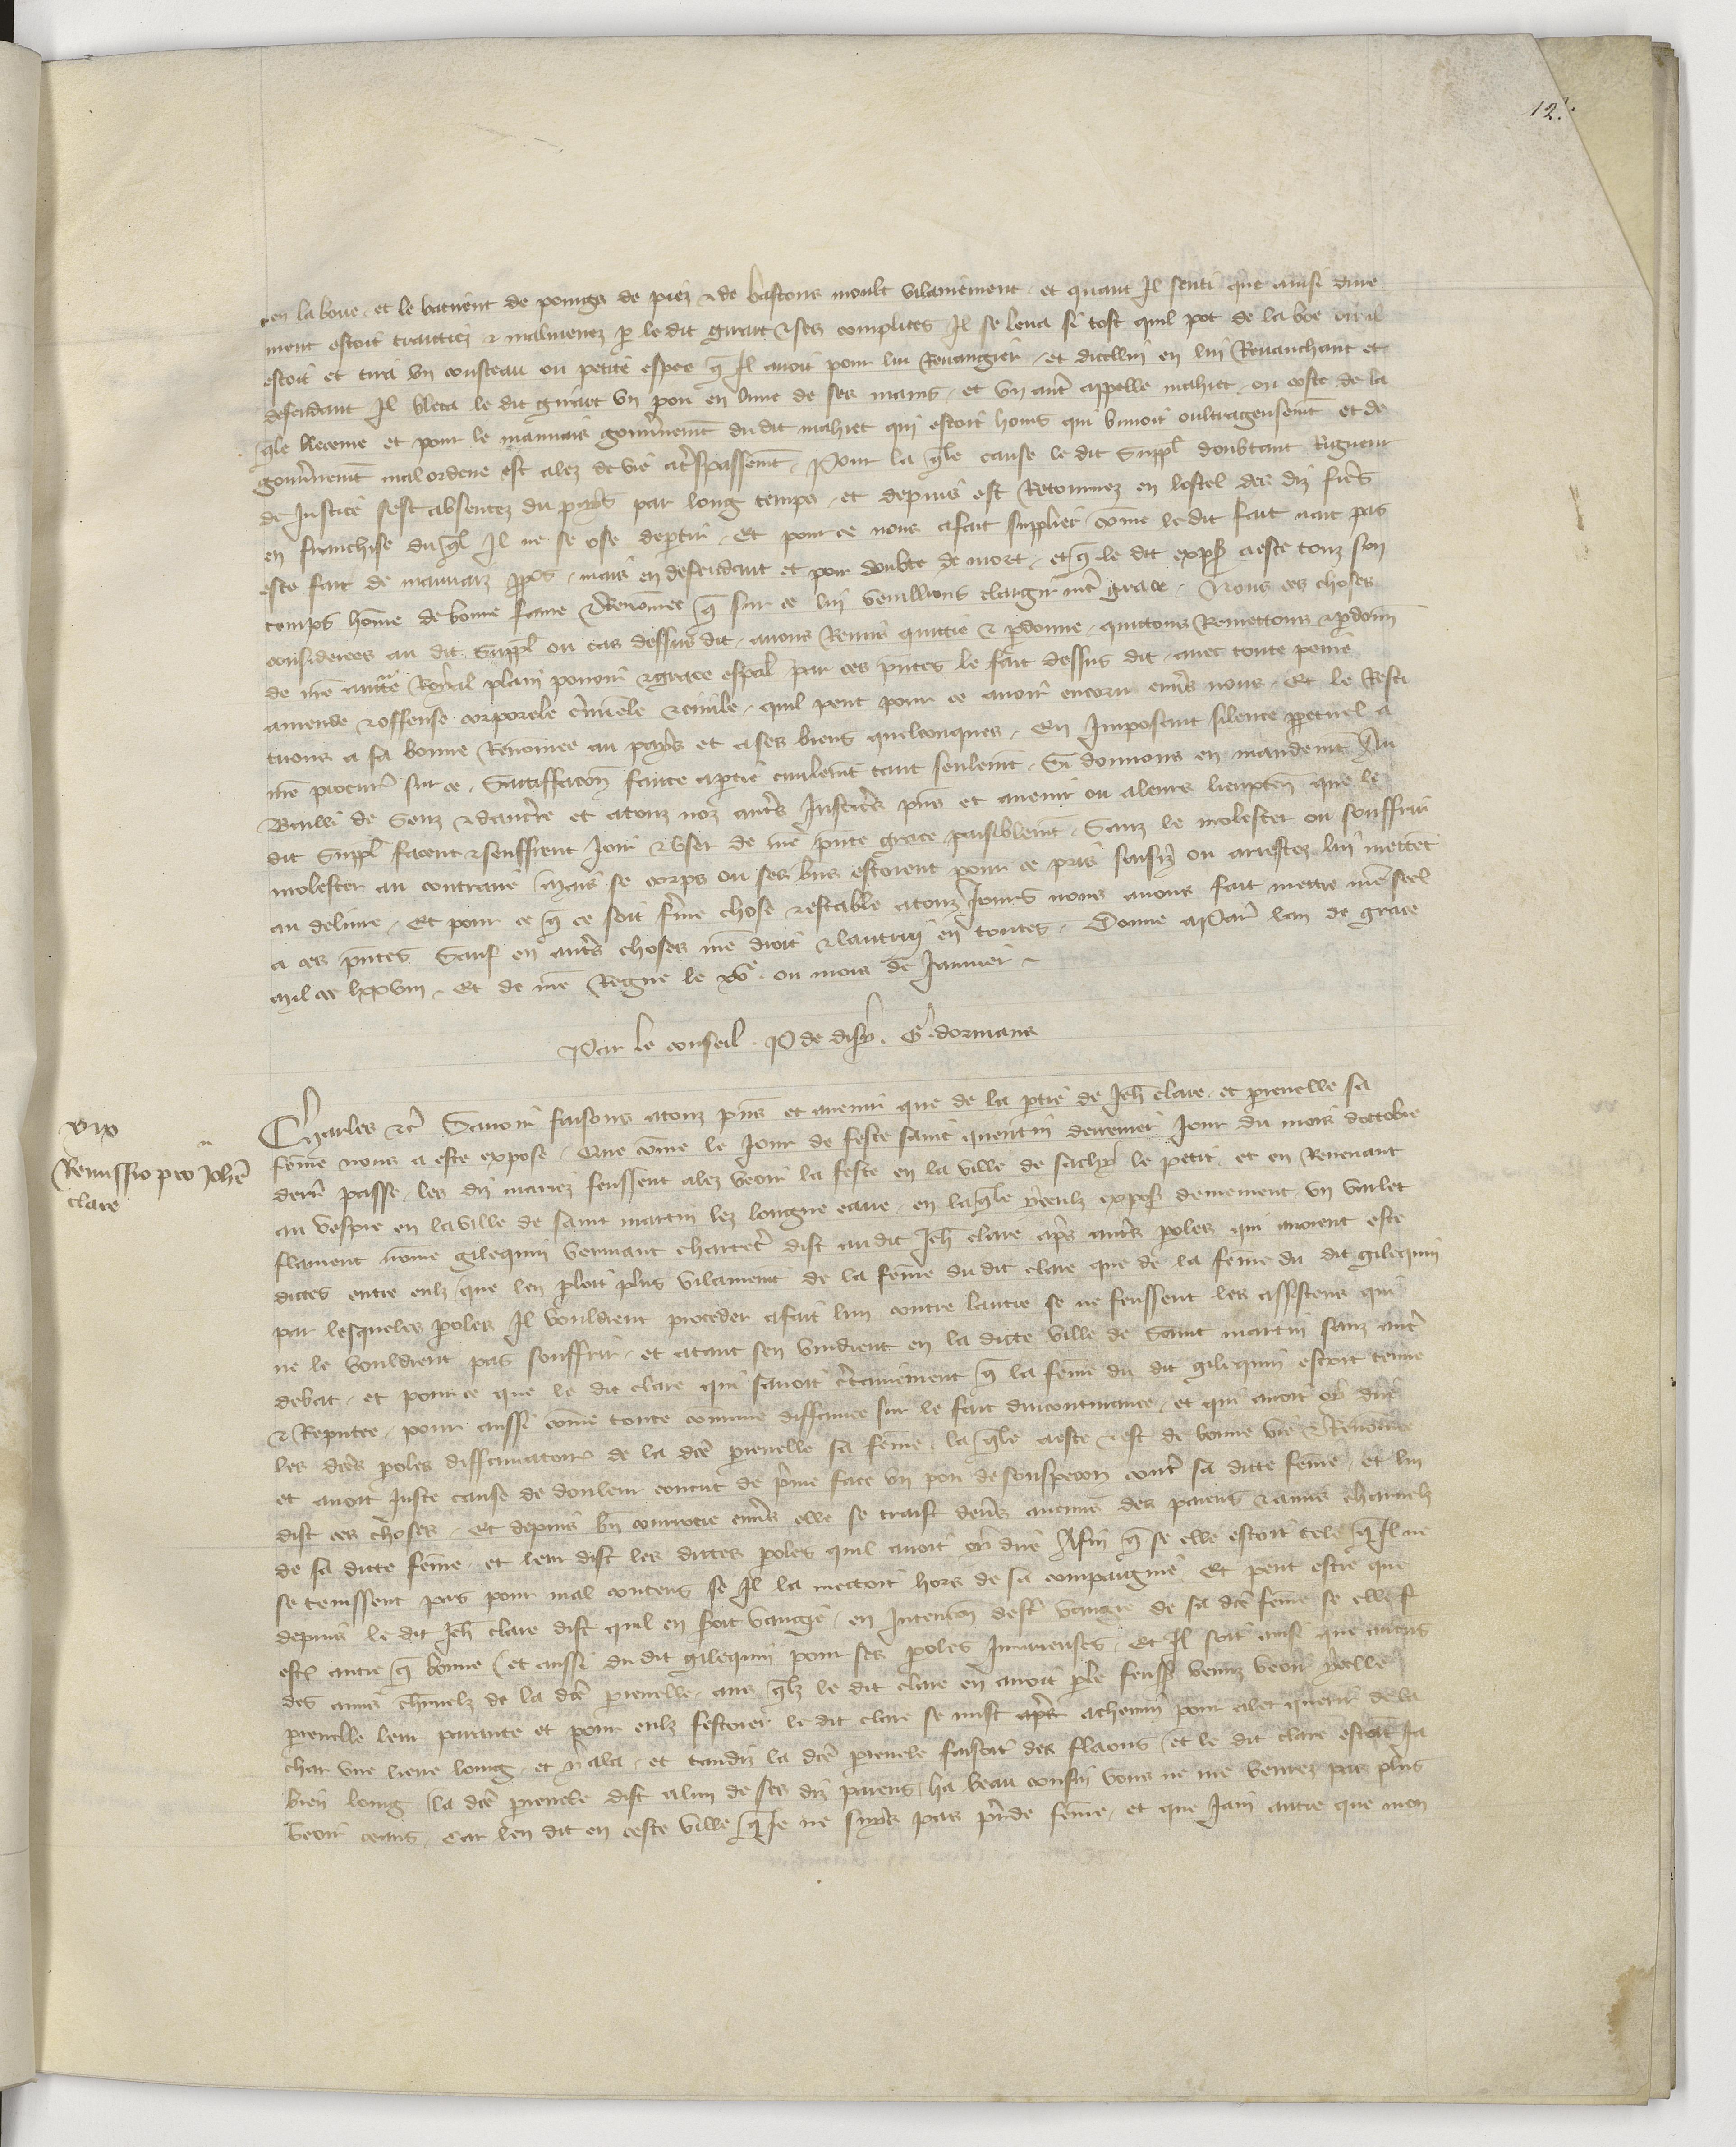 12.
en la boue et le batirent de poings de piez & de bastons moult vilainement et quant Il senti que ainsi dure
ment estoit traittiez & malmenez p le dit girart & ses complices Il se leva si tost quil pot de la boe ou il
estoit et tira un cousteau ou petite espee q Il avoit pour lui Revangier et dicellui en lui Revanchant et
defendant Il bleca le dit girart un pou en lune de ses mains et un autre appelle mahiet ou coste de la
qle bleceure et pour le mauvais gouvnemt du dit mahiet qui estoit homs qui buvoit oultrageusemt et de
gouvnemt mal ordene est alez de vie a trespassemt Pour la qle cause le dit Suppl doubtant Rigueur
de Justice sest absentez du pays par long temps et depuis est Retournez en lostel des diz freres
en franchise du ql Il ne se ose departir Et pour ce nous a fait supplier come le dit fait nait pas
este fait de mauvaiz ppos mais en defendant et por doubte de mort et q le dit expos a este touz son
temps home de bonne fame & Renomee q sur ce lui veuillions elargir nre grace Nous ces choses
considerees au dit Suppl ou cas dessus dit avons Remis quittie & pdonne quittons Remettons & pdonn
de nre aucte Royal plain povoir & grace espal par ces pntes le fait dessus dit avec toute peine
amende & offense corporele criminele & civile quil peut pour ce avoir encoru envs nous Et le Resti
tuons a sa bonne Renomee au pays et a ses biens quelconques En Imposant silence ppetuel a
nre procur sur ce Satisfacon faicte a ptie civilemt tant seulemt Si donnons en mandemt Au
Bailli de Senz & dauxre et a touz noz autres Justicrs pns et avenir ou a leurs lieuxten que le
dit Suppl facent & seuffrent Joir & user de nre pnte grace paisiblemt Sanz le molester ou souffrir
molester au contraire Mais se corps ou ses biens estoient pour ce pris saisiz ou arrestez lui mettent
au delivre Et pour ce q ce soit ferme chose & estable a touz Jours nous avons fait mettre nre scel
a ces pntes Sauf en autres choses nre droit & lautruy en toutes Donne a Paris lan de grace
mil ccc lxxviii Et de nre Regne le xve ou mois de Janvier
Par le conseil P de disy G dormans
viix
Remissio pro Johe
clare
Charles &c Savoir faisons a touz pns et avenir que de la ptie de Jeh clare et perrenelle sa
feme nous a este expose Que come le Jour de feste saint quentin derrenier Jour du mois doctobre
derre passe les diz mariez feussent alez veoir la feste en la ville de sachy le petit et en Revenant
au vespre en la ville de saint martin lez longue eaue en laqle yceulz expos demeurent un varlet
flament nome gilequin charret dist au dit Jeh clare apres autres poles qui avoient este
dictes entre eulz que len ploit plus vilainent de la feme du dit clare que de la feme du dit gilequin
par lesqueles poles Il vouldrent proceder a fait lun contre lautre se ne feussent les assistens qui
ne le vouldrent pas souffrir et atant sen vindrent en la dicte ville de saint martin sanz autre
debat et pour ce que le dit clare qui savoit ctainement q la feme du dit gilequin estoit tenue
& Reputee pour aussi come toute comune diffamee sur le fait dincontinance et qui avoit oy dire
les dces poles diffamatoires de la dce perrenelle sa feme la qle a este & est de bonne vie & Renomee
et avoit Juste cause de douleur conceut de prime face un pou de souspecon contre sa dicte feme et lui
dist ces choses Et depuis lui courrocie envs elle se traist devers aucuns des parens & amis charnelz
de sa dicte feme et leur dist les dictes poles quil avoit oy dire Afin q se elle estoit tele q Il ne
se tenissent pas pour mal contens se Il la mettoit hors de sa compaignie Et peut estre que
depuis le dit Jeh clare dist quil en seroit vangie en Intencion destre vangie de sa dce feme se elle
autre q bonne et aussi du dit gilequin pour ses poles Injurieuses Et Il soit ainsi que aucuns
des amis charnelz de la dce perrenelle aus qlz le dit clare en avoit ple feuss venuz veoir ycelle
perrenelle leur parente et pour eulz festoier le dit clare se mist a chemin pour aler querir de la
char une lieue loing et y ala et tandiz la dce perrenele faisoit des flaons et le dit clare estoit Ja
bien loing la dce perrenele dist a lun de ses diz parens ha beau cousin vous ne me verrez pas plus
veoir ceans Car len dit en ceste ville q Je ne suys pas preude feme et que Jain autre que mon